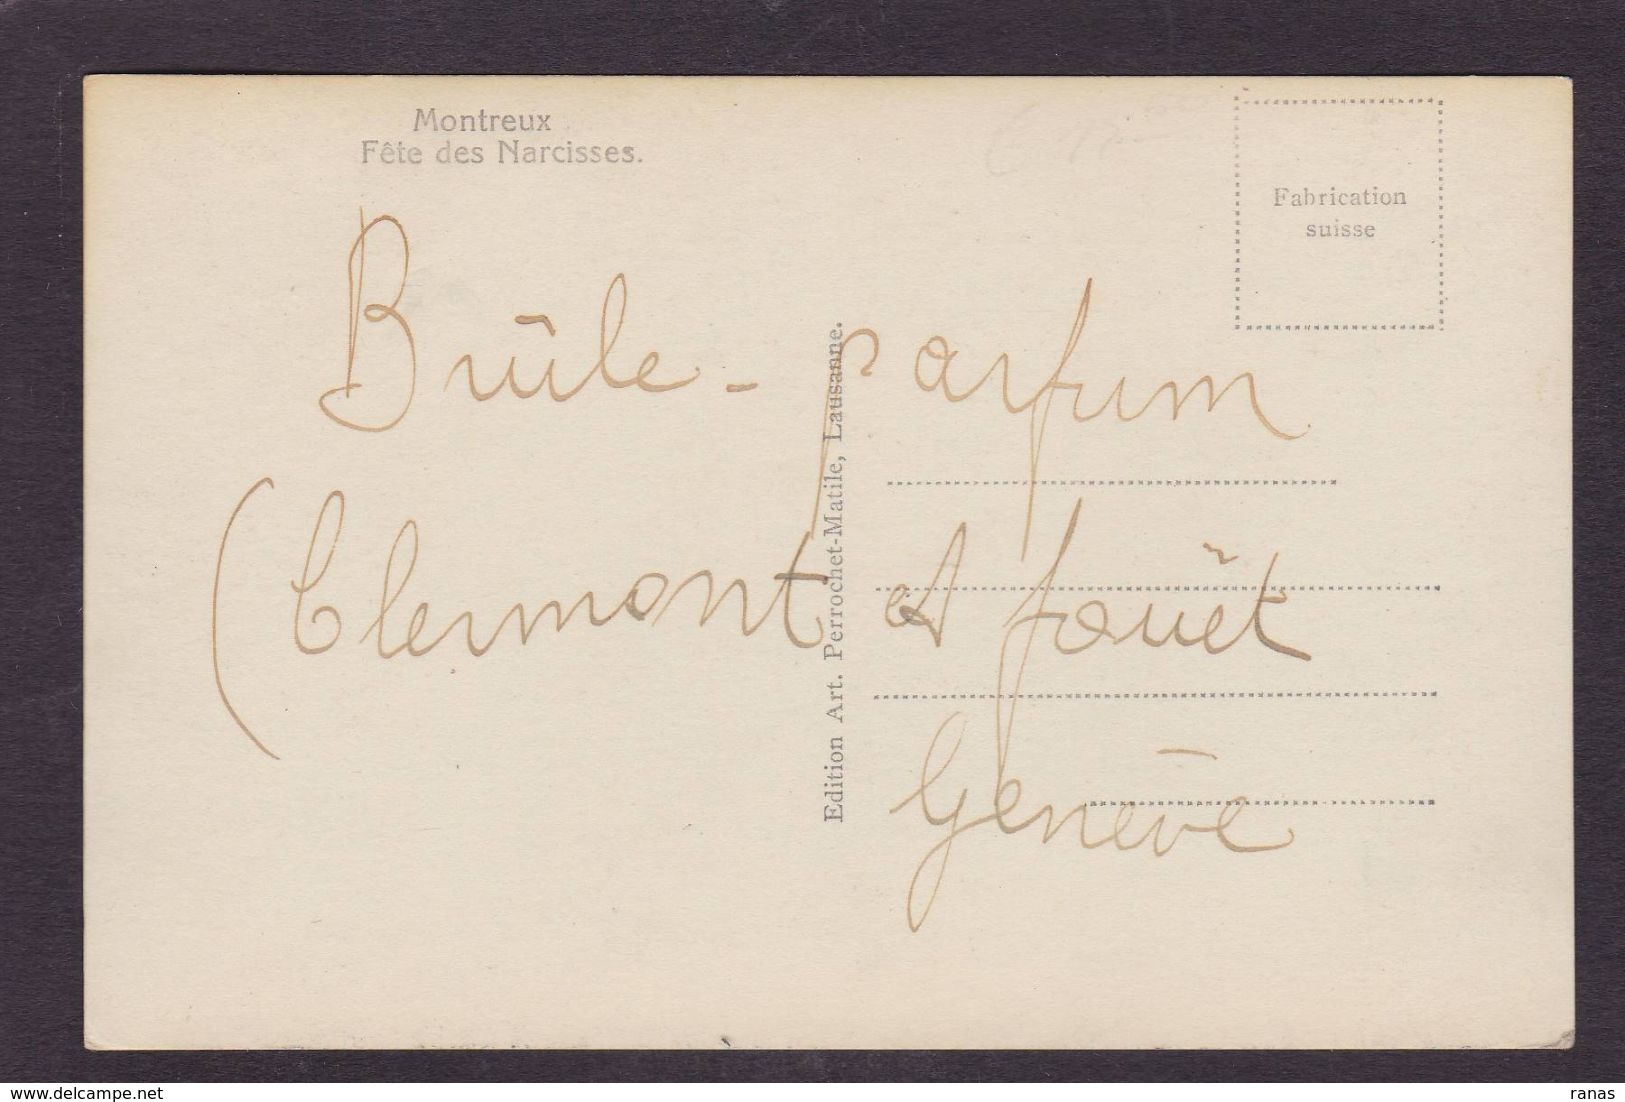 Montreux
Fête des Narcisses.
Fabrication
suisse
Brûle-parfum
(Clermont et Fouët
Genève
Edition Art. Perrochet-Matile, Lausanne.
ranas